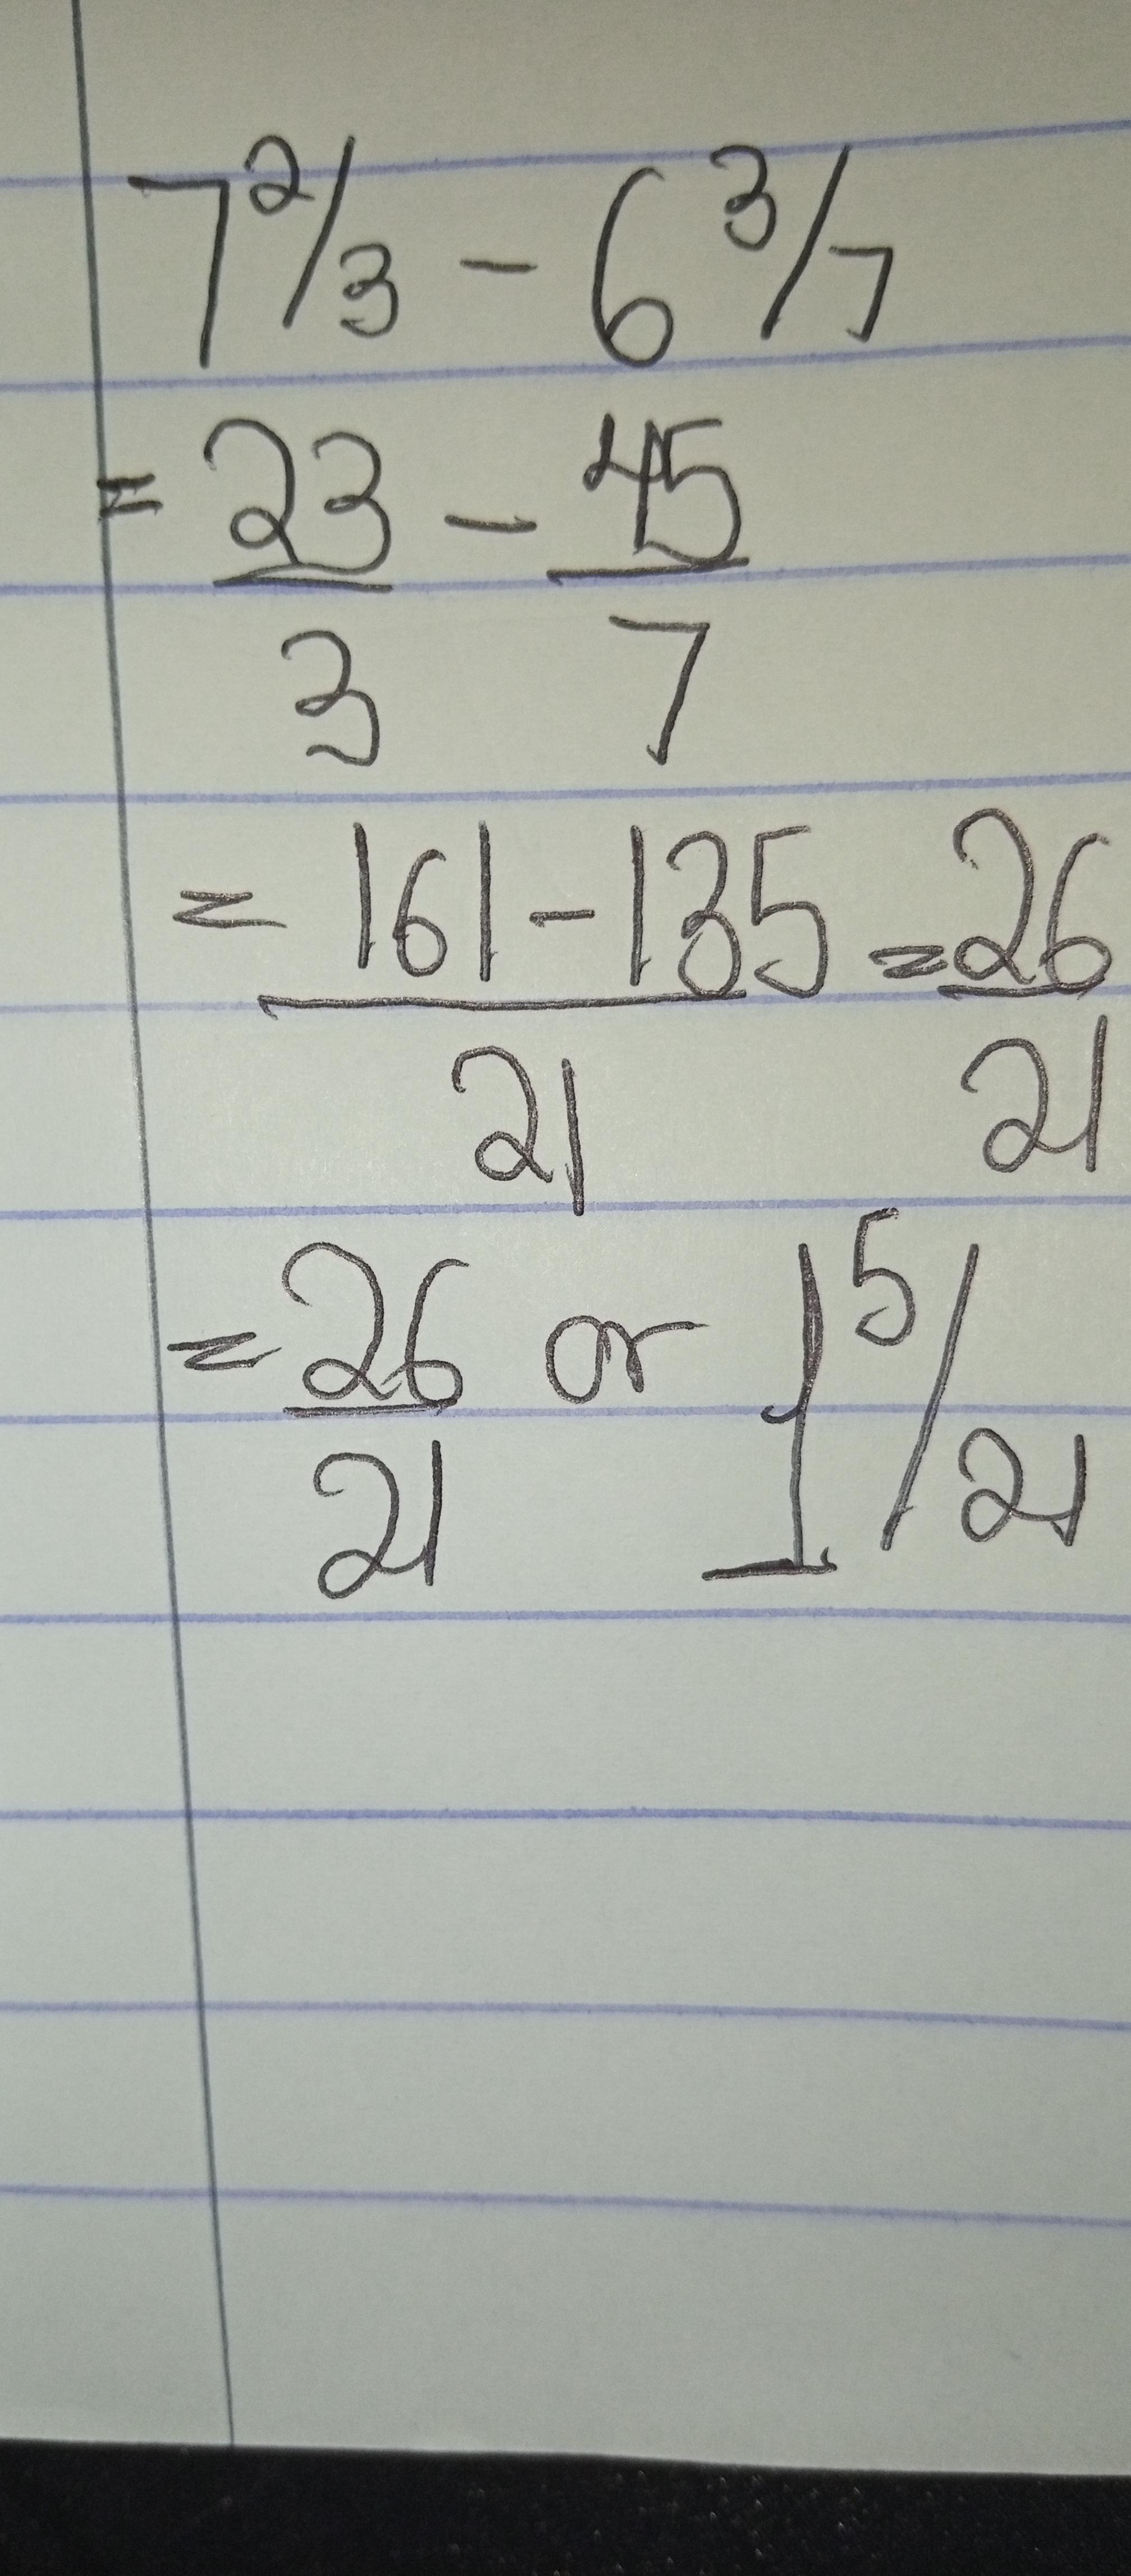 7 2/3 - 6 3/7
= 23/3 - 45/7
= 161-135/21 = 26/21
= 26/21 or 1 5/21